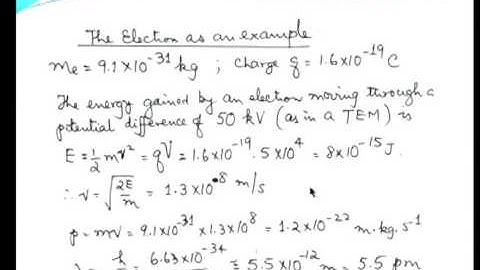 The Electron as an example
Me = 9.1 × 10⁻³¹ kg ; Charge q = 1.6 × 10⁻¹⁹ C
The energy gained by an electron moving through a
potential difference of 50 kV (as in a TEM) is
E = 1/2 mv² = qV = 1.6 × 10⁻¹⁹ . 5 × 10⁴ = 8 × 10⁻¹⁵ J.
∴ v = √(2E/m) = 1.3 × 10⁸ m/s
p = mv = 9.1 × 10⁻³¹ × 1.3 × 10⁸ = 1.2 × 10⁻²² m.kg.s⁻¹
h 6.63 × 10⁻³⁴ = 5.5 × 10⁻¹² m = 5.5 pm